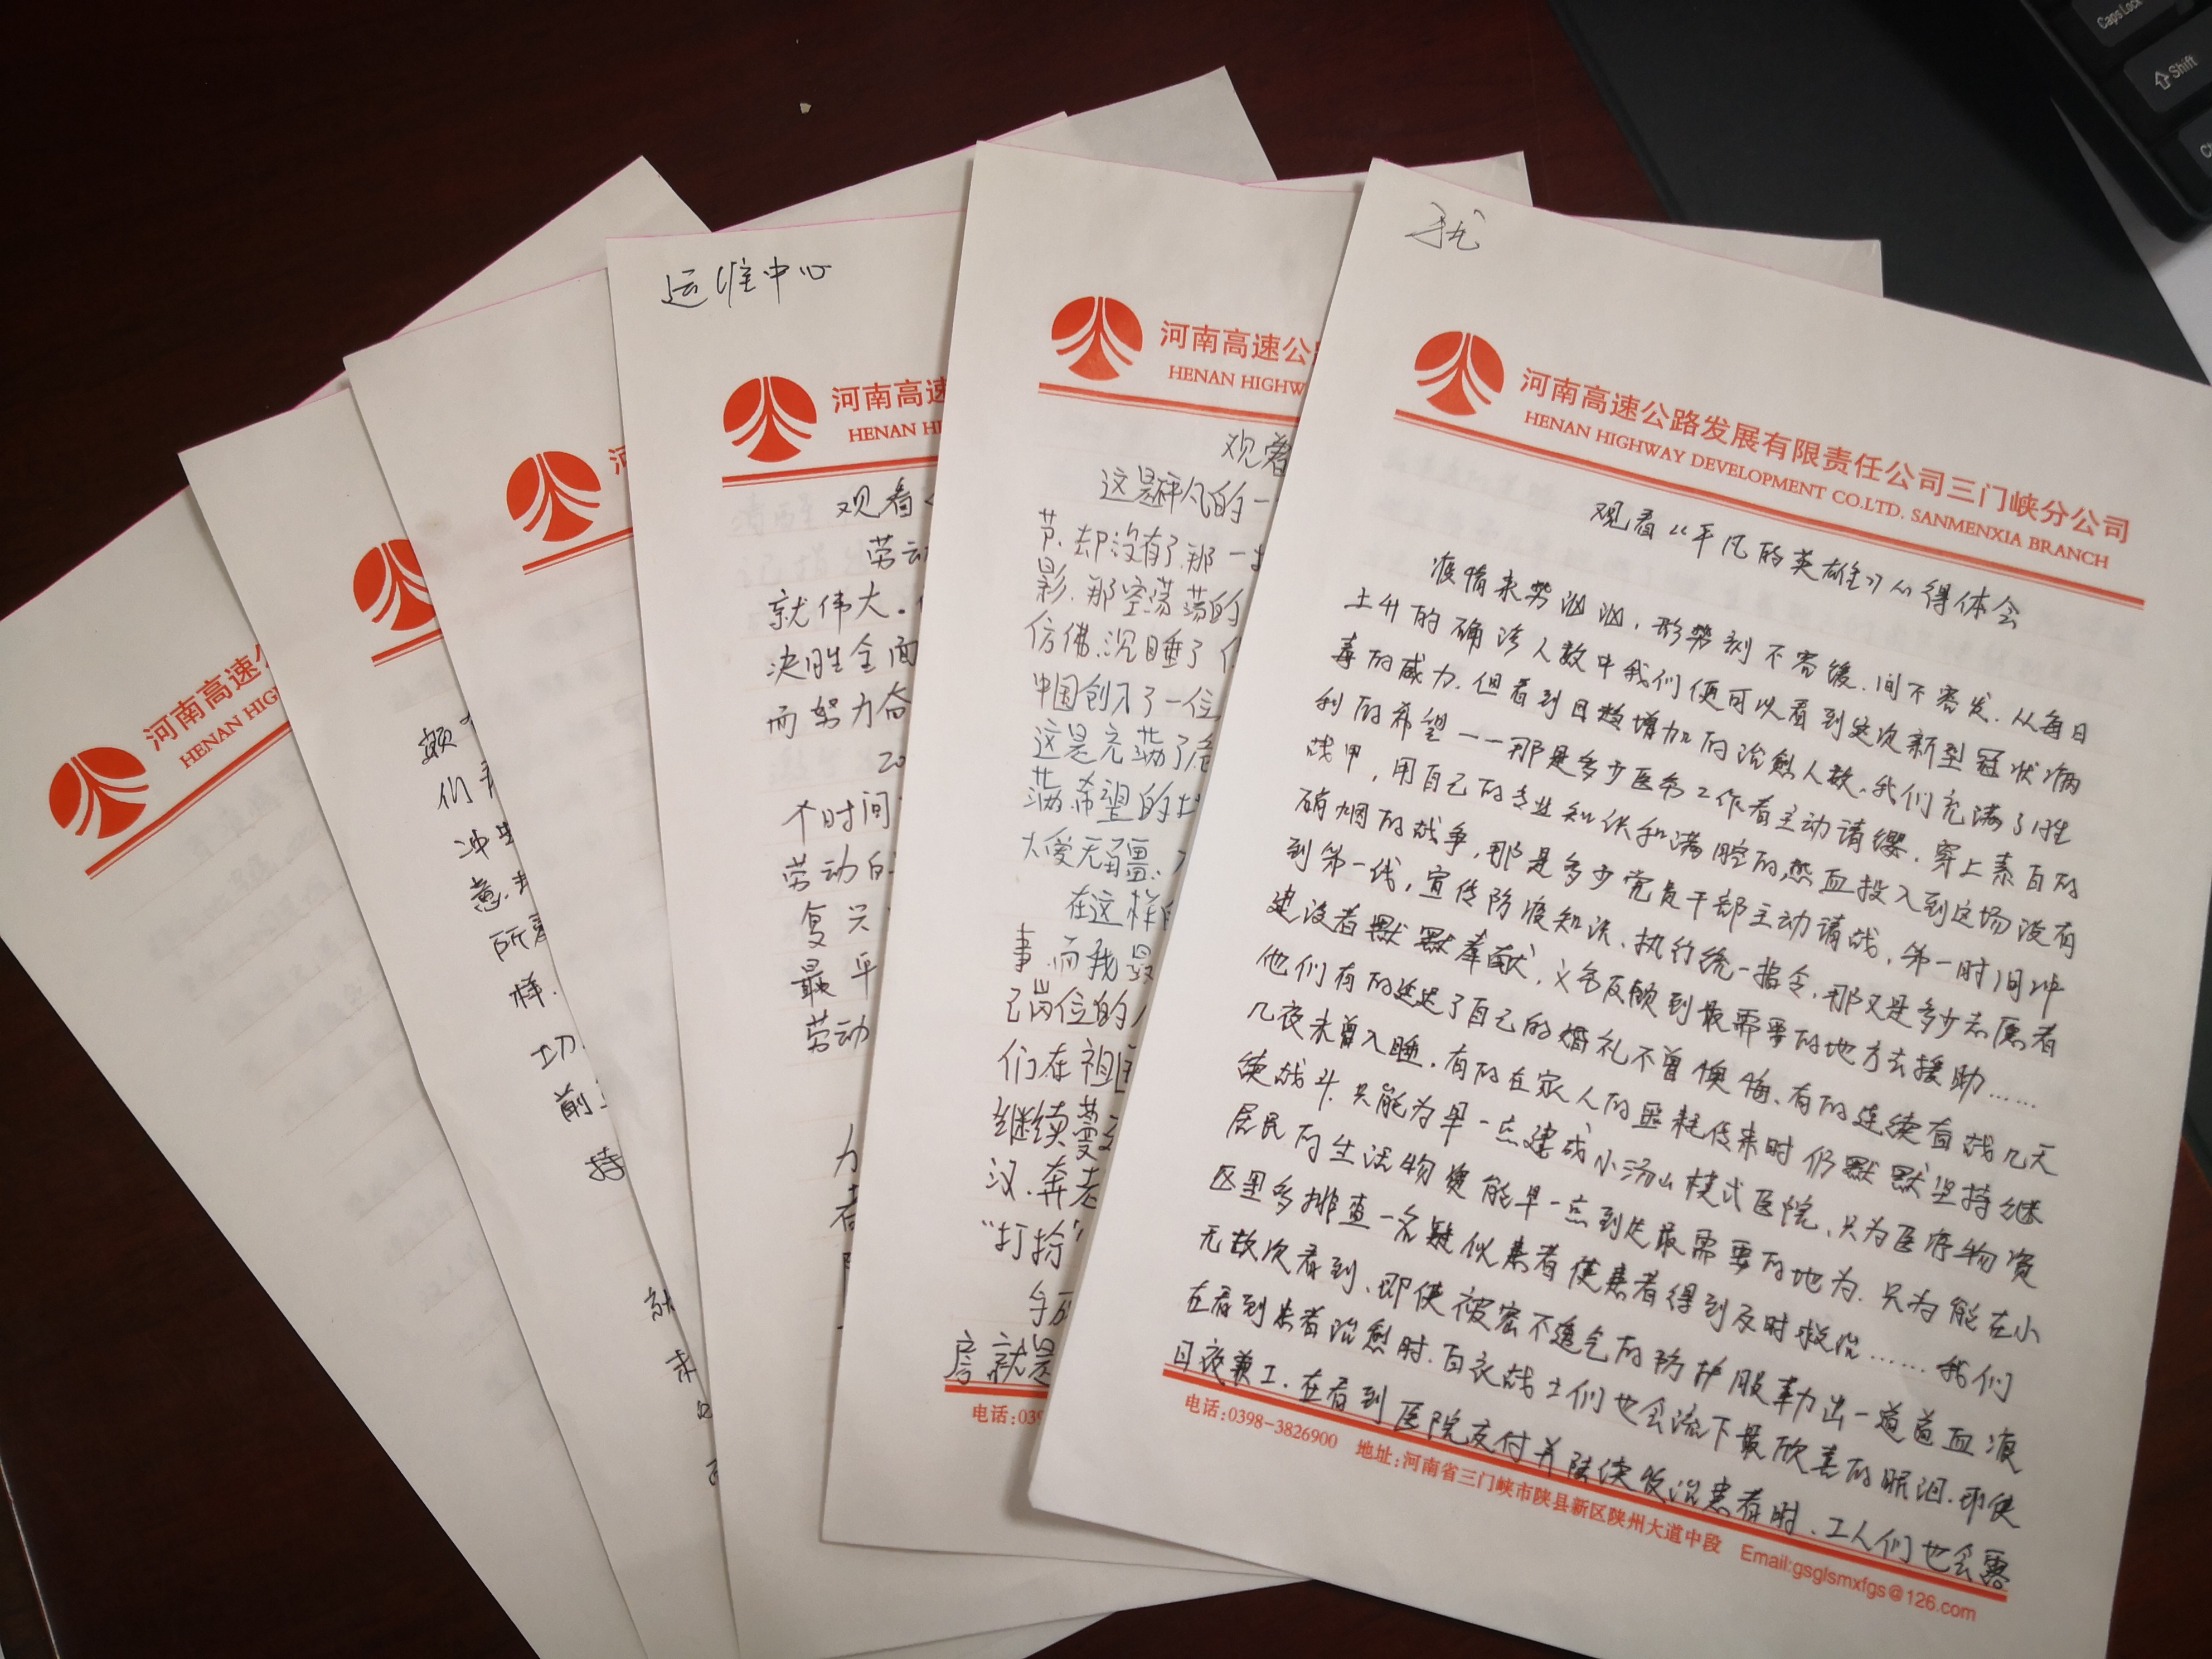 河南高速公
HENAN HIG
额
们
冲
意
所
样.
功.
前
持
就
未
河
运维中心
河南高速
HENAN HI
观看
劳动
就伟大.
决胜全面
而努力奋
20
个时间
劳动的
复兴
最平
劳动
力
者
河南高速公路
HENAN HIGHW
观看
这是平凡的一
节.却没有了.那一
影.那空荡荡的
仿佛.沉睡了
中国创入了一位
这是充满了危
满.希望的
大爱无疆.
在这样的
事.而我最
己岗位的人
们在祖国
继续蔓
汉.奔赴
“打扮”
房就是
电话:039
河南高速公路发展有限责任公司三门峡分公司
HENAN HIGHWAY DEVELOPMENT CO.LTD. SANMENXIA BRANCH
观看《平凡的英雄》心得体会
疫情来势汹汹,形势刻不容缓.间不容发.从每日
上升的确诊人数中我们便可以看到这次新型冠状病
毒的威力.但看到日趋增加的治愈人数.我们充满了胜
利的希望——那是多少医务工作者主动请缨.穿上素白的
战甲,用自己的专业知识和满腔的热血投入到这场没有
硝烟的战争,那是多少党员干部主动请战,第一时间冲
到第一线,宣传防疫知识、执行统一指令,那又是多少志愿者
建设者默默奉献,义务反顾到最需要的地方去援助……
他们有的延迟了自己的婚礼不曾懊悔、有的连续奋战几天
几夜未曾入睡.有的在家人的噩耗传来时仍默默坚持继
续战斗.只能为早一点建成小汤山模式医院、只为医疗物资
居民的生活物资能早一点到达最需要的地为.只为能在小
区里多排查一名疑似患者使患者得到及时救治……我们
无数次看到、即使被密不透气的防护服勒出一道道血痕
在看到患者治愈时.白衣战士们也会流下最欣喜的眼泪.即使
日夜兼工.在看到医院交付并陆续收治患者时、工人们也会露
电话:0398-3826900 地址:河南省三门峡市陕县新区陕州大道中段 Email:gsglsmxfgs@126.com
Caps Lock
Shift